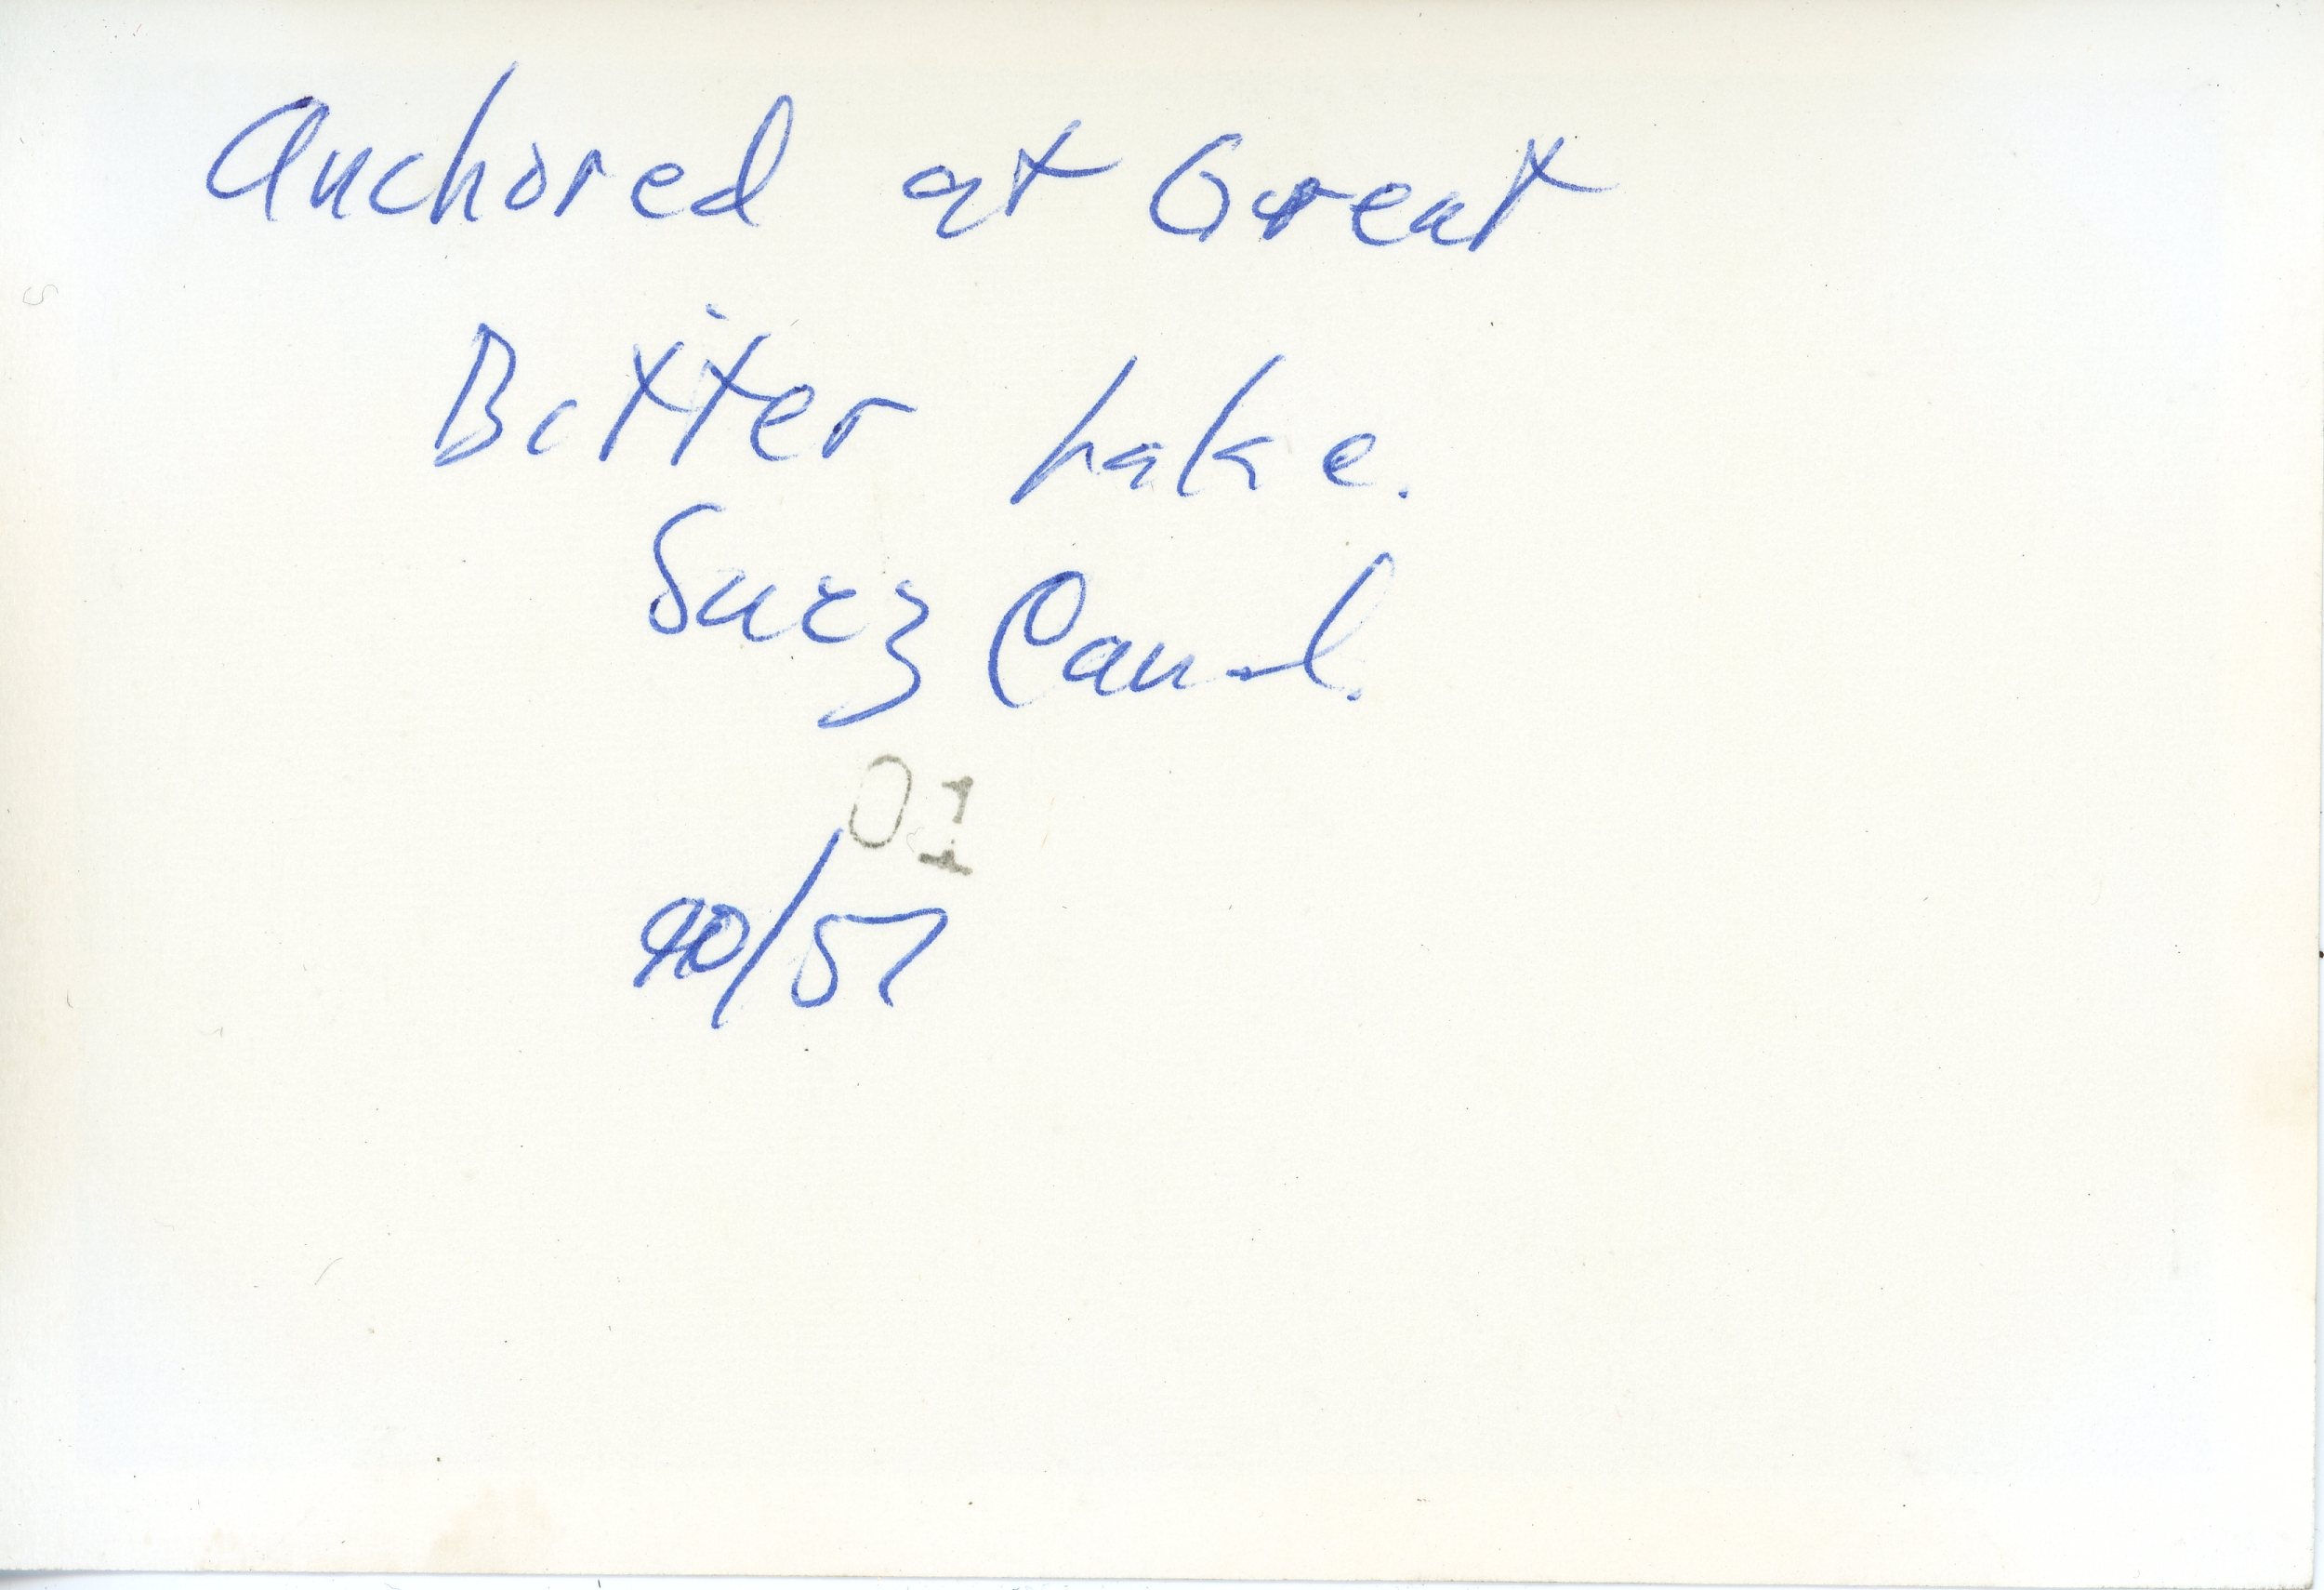 Anchored at Great
Bitter Lake.
Suez Canal.
01
90/57